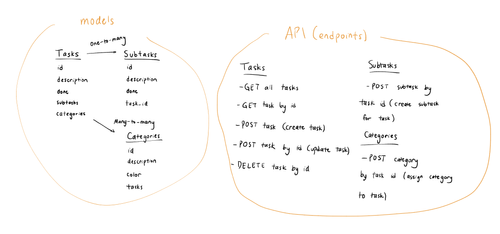 models
one-to-many
Tasks
id
description
done
subtasks
categories
Subtasks
id
description
done
task_id
Many-to-many
Categories
id
description
color
tasks
API (endpoints)
Tasks
- GET all tasks
- GET task by id
- POST task (create task)
- POST task by id (update task)
- DELETE task by id
Subtasks
- POST subtask by
task id (create subtask
for task)
Categories
- POST category
by task id (assign category
to task)